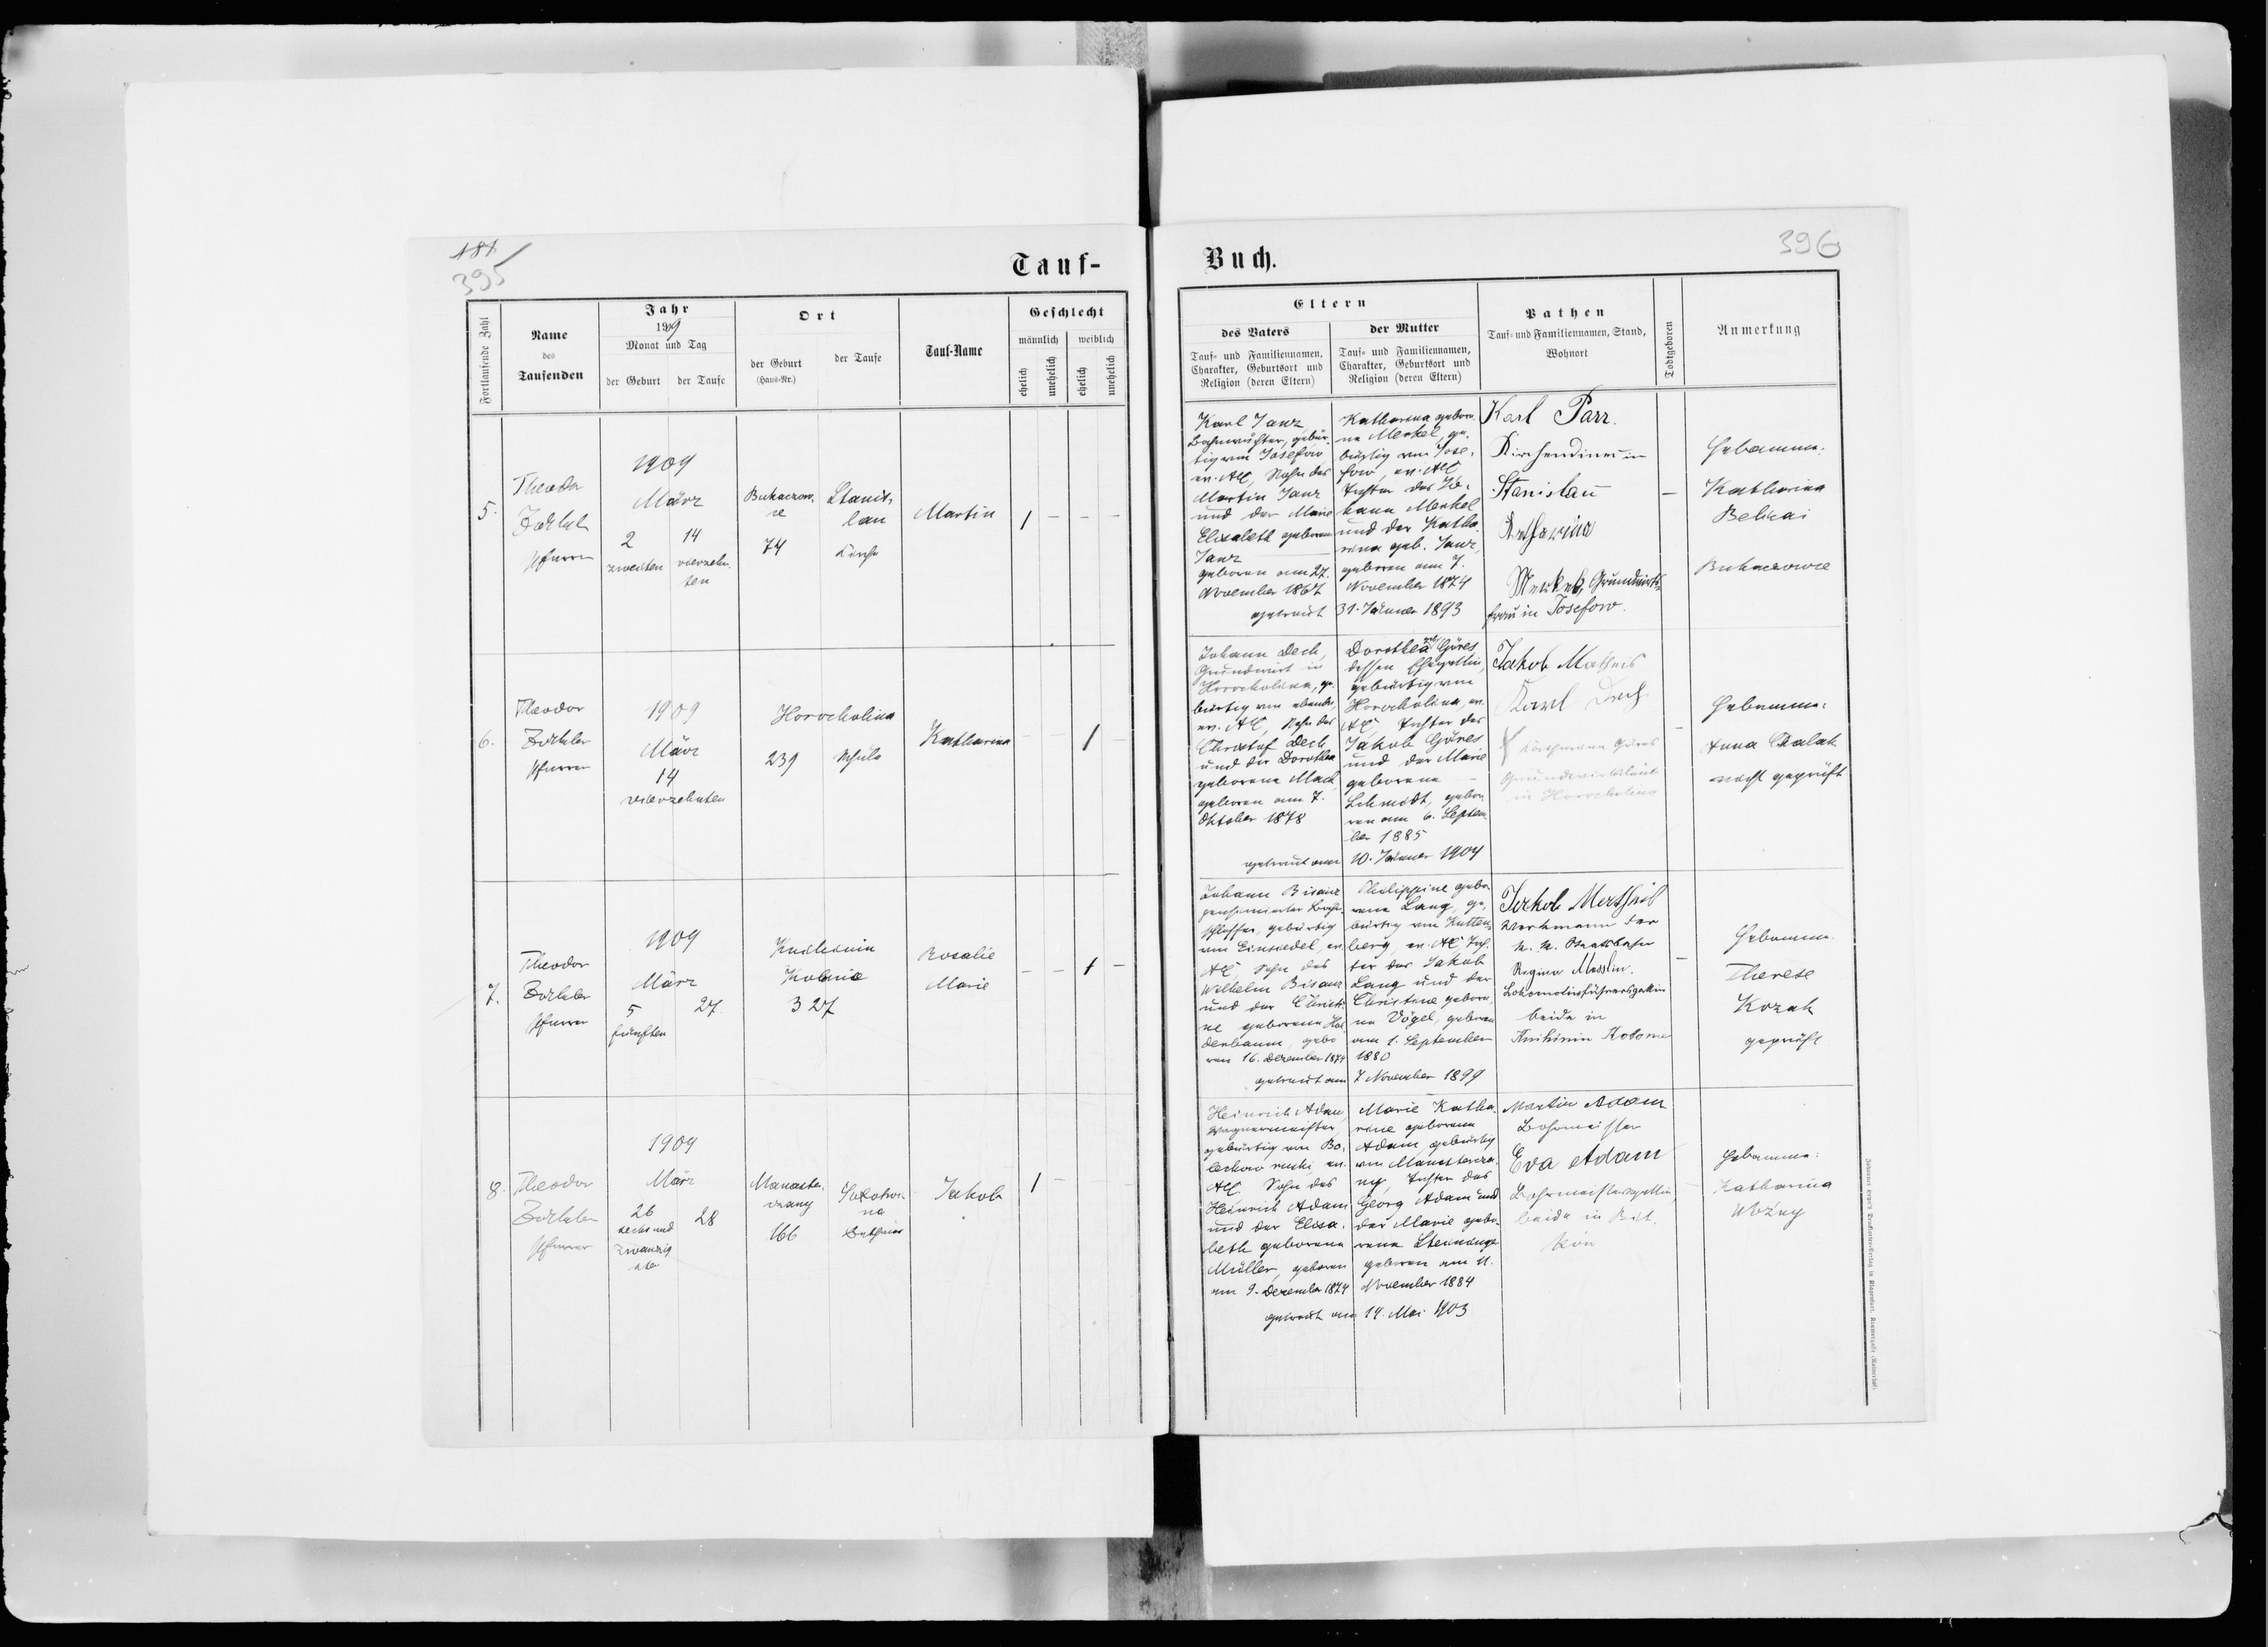 181
395
Tauf-
Fortlaufende Zahl
Name
des
Taufenden
Jahr
1909
Monat und Tag
der Geburt
der Taufe
Ort
der Geburt
(Haus-Nr.)
der Taufe
Tauf-Name
Geschlecht
männlich
weiblich
ehelich
unehelich
ehelich
unehelich
5.
Theodor
Zöckler
Pfarrer
1909
März
2
zweiten
14
vierzehn-
ten
Bukaczow-
ce
74
Stanis-
lau
Kirche
Martin
1
—
—
—
6.
Theodor
Zöckler
Pfarrer
1909
März
14
vierzehnten
Horocholina
239
Schule
Katharina
—
—
1
—
7.
Theodor
Zöckler
Pfarrer
1909
März
5
fünften
27.
Knihinin
Kolonie
327
Rosalie
Marie
—
—
1
—
8.
Theodor
Zöckler
Pfarrer
1909
März
26
sechsund
zwanzig
sten
28
Manaste-
rzany
166
Bethaus
Jakob
1
—
Buch.
396
Eltern
des Vaters
Tauf- und Familiennamen,
Charakter, Geburtsort und
Religion (deren Eltern)
der Mutter
Tauf- und Familiennamen,
Charakter, Geburtsort und
Religion (deren Eltern)
Pathen
Tauf- und Familiennamen, Stand,
Wohnort
Todtgeboren
Anmerkung
Karl Janz,
Bahnwächter, gebür-
tig von Josefow
ev. AC, Sohn des
Martin Janz
und der Marie
Elisabeth geboren
Janz
geboren am 27.
November 1867
getraut
Katharina gebore-
ne Merkel, ge-
bürtig von Jose-
fow, ev. AC
Tochter des Jo-
hann Merkel
und der Katha
rina geb. Janz,
geboren am 7.
November 1874
31. Jänner 1893
Karl Parr.
Kirchendiener in
Stanislau
Katharina
Merkel, Grundwirts-
frau in Josefow.
—
Hebamme:
Katharina
Bukaczowce
Johann Dech,
Grundwirt in
Horocholina, ge-
bürtig von ebenda,
ev. AC, Sohn des
Christof Dech
und der Dorothea
geborene Mack,
geboren am 7.
Oktober 1878
getraut am
Dorothea geb. Göres
dessen Ehegattin,
gebürtig von
Horocholina, ev.
AC Tochter des
Jakob Göres
und der Marie
geborene —
Schmidt, gebo-
ren am 6. Septem
ber 1885
10. Jänner 1904
Jakob Matheis
Karl Dech
Katharina Göres
Grundwirtsleute
in Horocholina
—
Hebamme:
Anna Chalak
nicht geprüft
Johann Bisanz
pensionierter Bahn-
schlosser, gebürtig
von Einsiedel, ev
AC, Sohn des
Wilhelm Bisanz
und der Christi
ne geborene Hol
derbaum, gebo
ren 16. Dezember 1874
getraut am
Philippine gebo-
rene Lang, ge-
bürtig von Kutten-
berg ev. AC, Toch-
ter des Jakob
Lang und der
Christine gebore-
ne Vögel, geboren
am 1. September
1880
7 November 1899
Jakob
Werkmann der
k. k. Staatsbahn
Regina Messlin.
Lokomotivführersgattin
beide in
Knihinin Kolonie
—
Hebamme
Therese
Kozak
geprüft
Heinrich Adam,
Wagnermeister,
gebürtig von Bo-
lechow ruski, ev.
AC. Sohn des
Heinrich Adam
und der Elisa-
beth geborene
Müller, geboren
am 9. Dezember 1874
getraut am
Marie Katha-
rine geborene
Adam, gebürtig
von Manasterza-
ny, Tochter des
Georg Adam und
der Marie gebo-
rene
geboren am 11.
November 1884
14. Mai 1903
Martin Adam
Bohrmeister
Eva Adam
Bohrmeistersgattin,
beide in Bit-
ków
—
Hebamme:
Katharina
Woźny